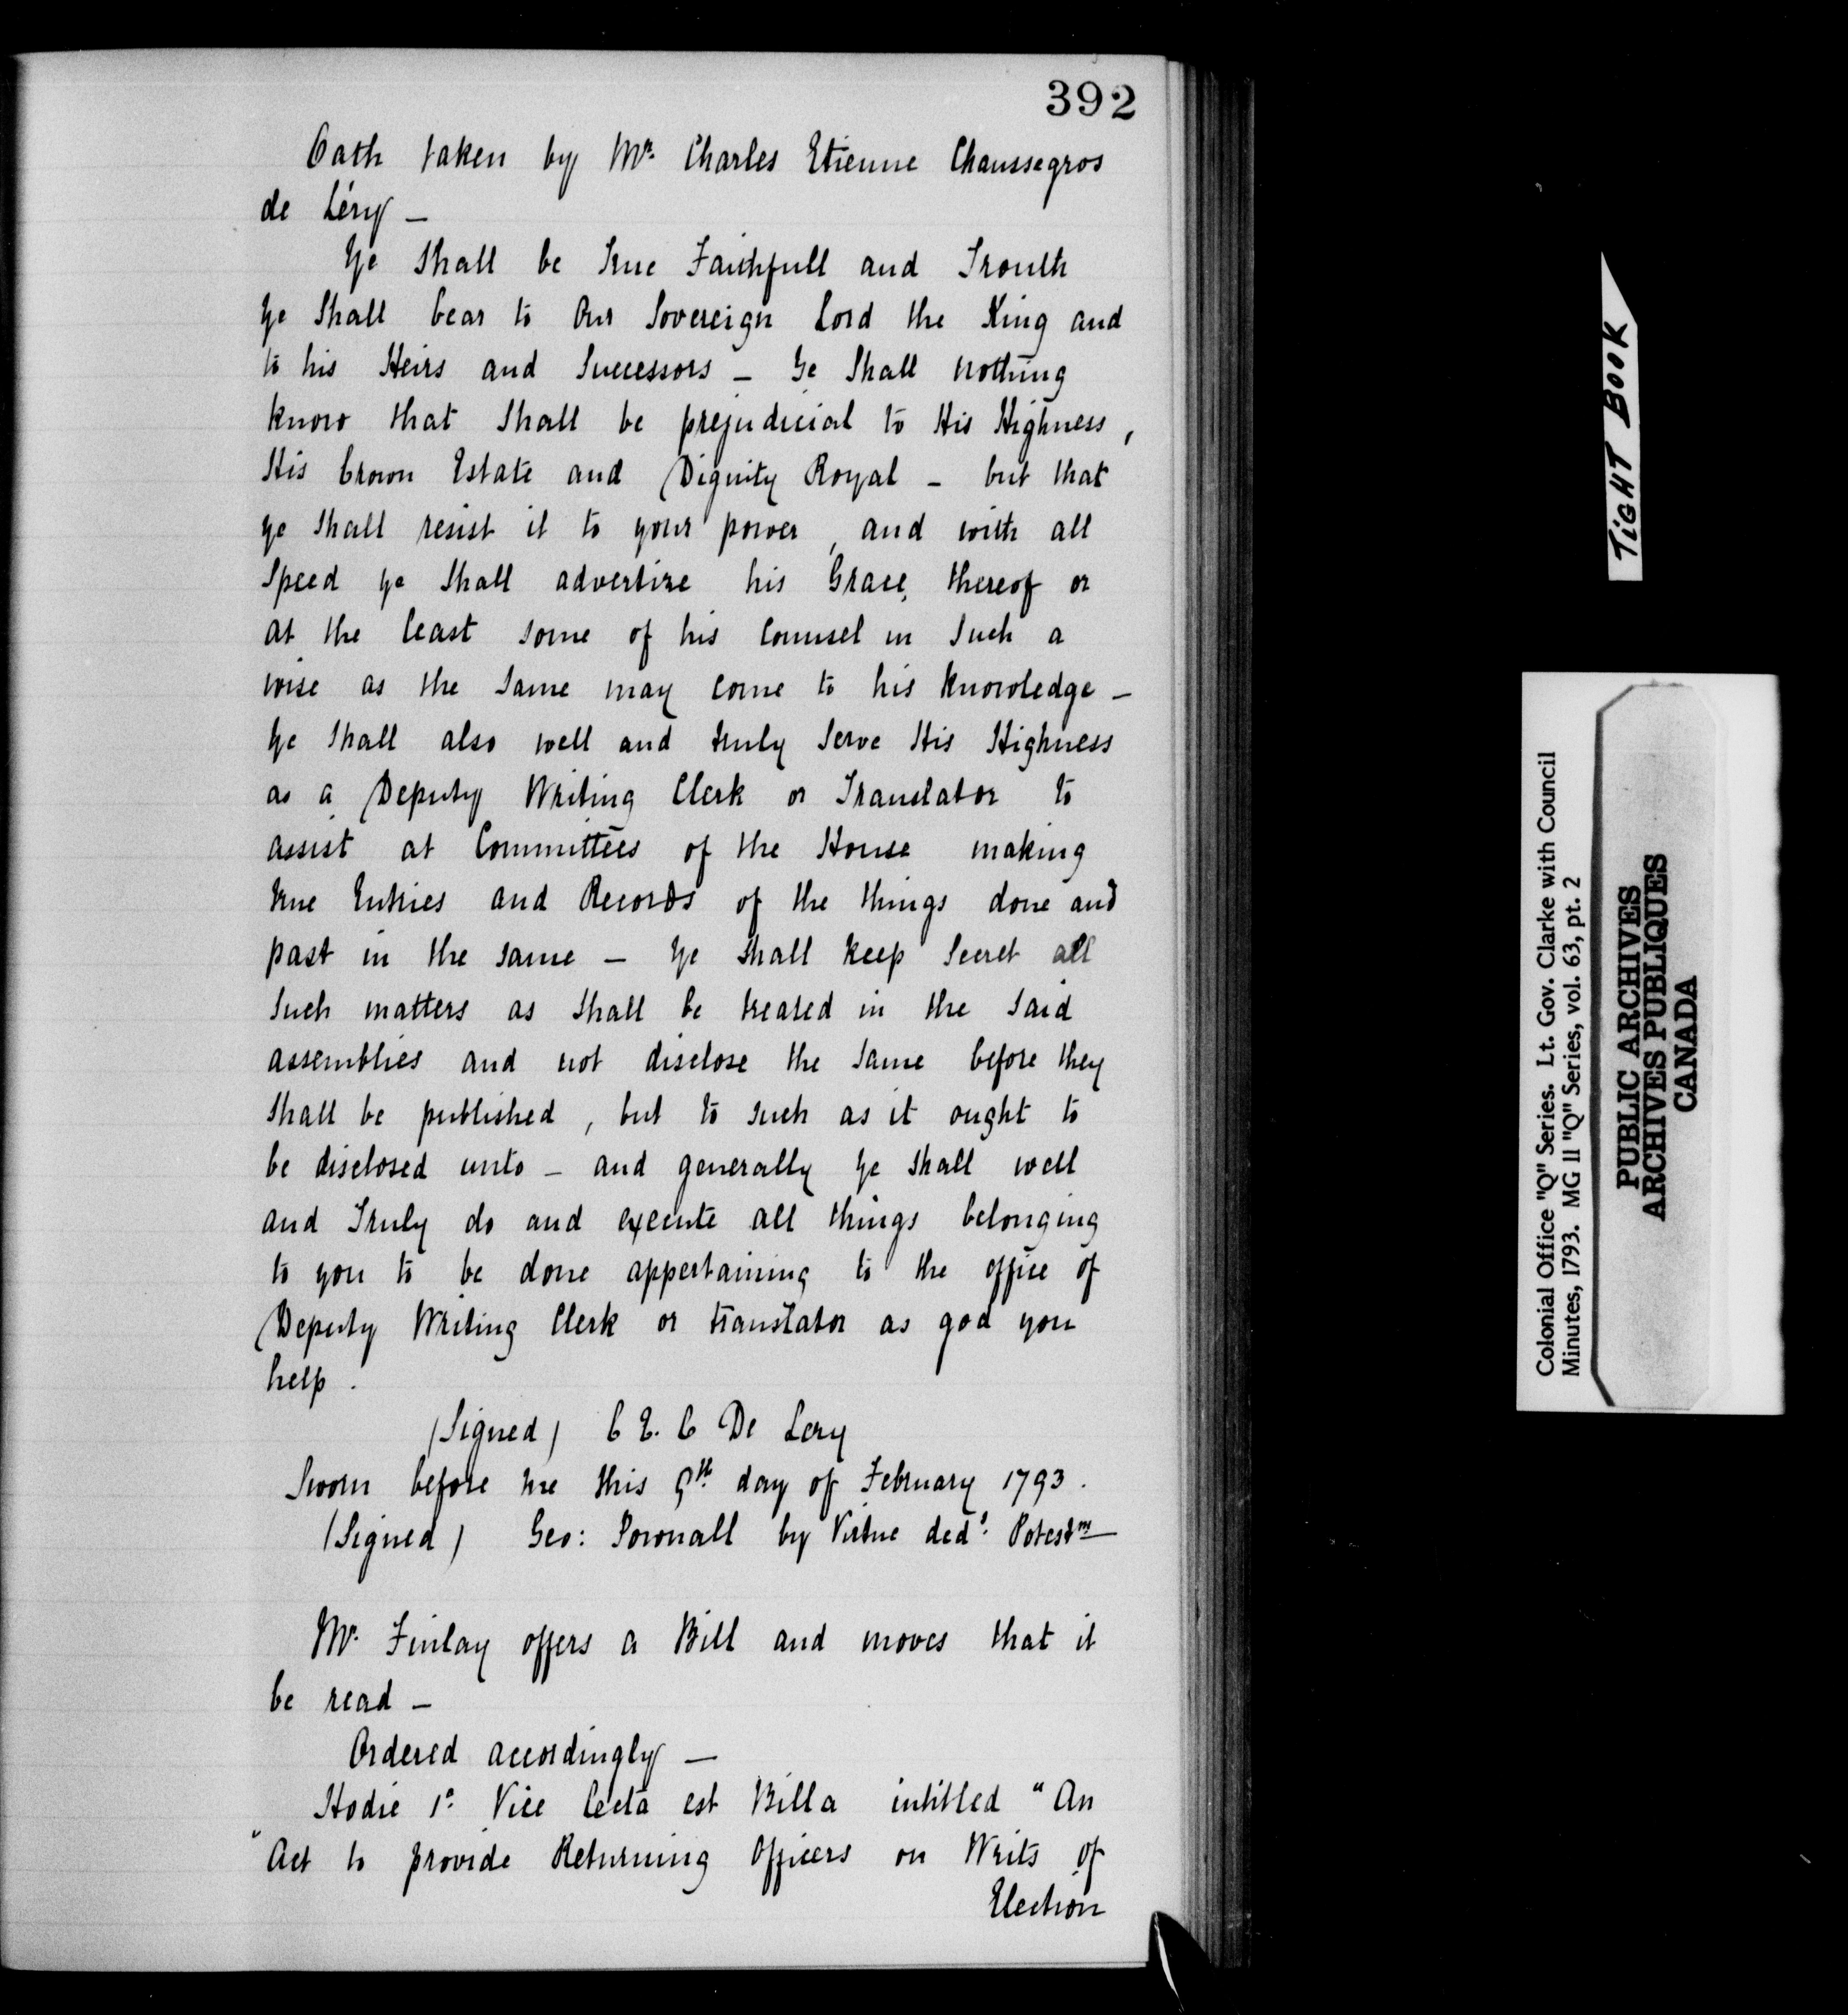 392
Oath taken by Mr. Charles Etienne Chaussegros
de Léry -
Ye Shall be True Faithfull and Trouth
Ye Shall bear to Our Sovereign Lord the King and
to his Heirs and Successors - Ye Shall nothing
know that Shall be prejudicial to His Highness,
His Crown Estate and Dignity Royal - but that
ye Shall resist it to your power, and with all
Speed ye Shall advertize his Grace, thereof or
at the least some of his Counsel in Such a
wise as the Same may come to his knowledge -
Ye Shall also well and truly Serve His Highness
as a Deputy Writing Clerk or Translator to
assist at Committees of the House making
true Entries and Records of the things done and
past in the same - Ye shall keep Secret all
Such matters as Shall be treated in the Said
assemblies and not disclose the Same before they
Shall be published, but to such as it ought to
be disclosed unto - and generally Ye shall well
and Truly do and execute all things belonging
to you to be done appertaining to the office of
Deputy Writing Clerk or translator as god you
help.
(Signed) C E. C De Lery
Sworn before me this 9th day of February 1793.
(Signed) Geo: Pownall by Virtue ded: Potestm
Mr. Finlay offers a Bill and moves that it
be read -
Ordered accordingly -
Hodie 1a Vice Lecta est Billa intitled "An
"Act to provide Returning Officers on Writs of
Election
TIGHT BOOK
Colonial Office "Q" Series. Lt. Gov. Clarke with Council
Minutes, 1793. MG 11 "Q" Series, vol. 63, pt. 2
PUBLIC ARCHIVES
ARCHIVES PUBLIQUES
CANADA